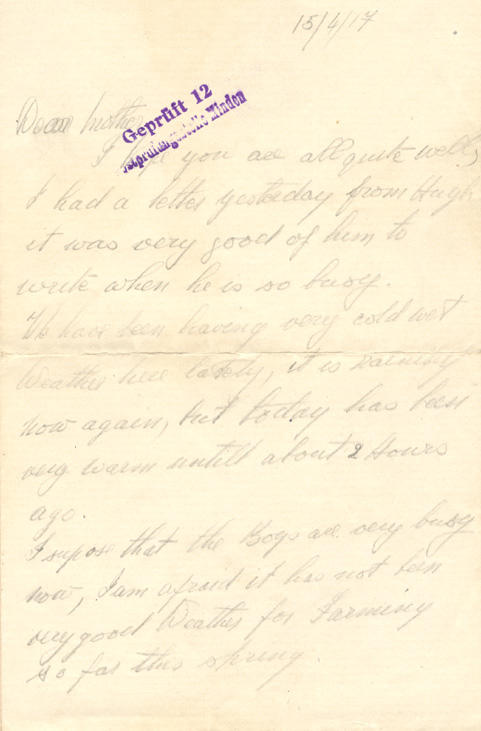 15/4/17
Dear Mother
Geprüft 12
Postprüfungsstelle Minden
I hope you are all quite well,
I had a letter yesterday from Hugh
it was very good of him to
write when he is so busy.
We have been having very cold wet
Weather here lately, it is raining
now again, but today has been
very warm untill about 2 Hours
ago.
I supose that the Boys are very busy
now, I am afraid it has not been
very good Weather for Farming
so far this spring.